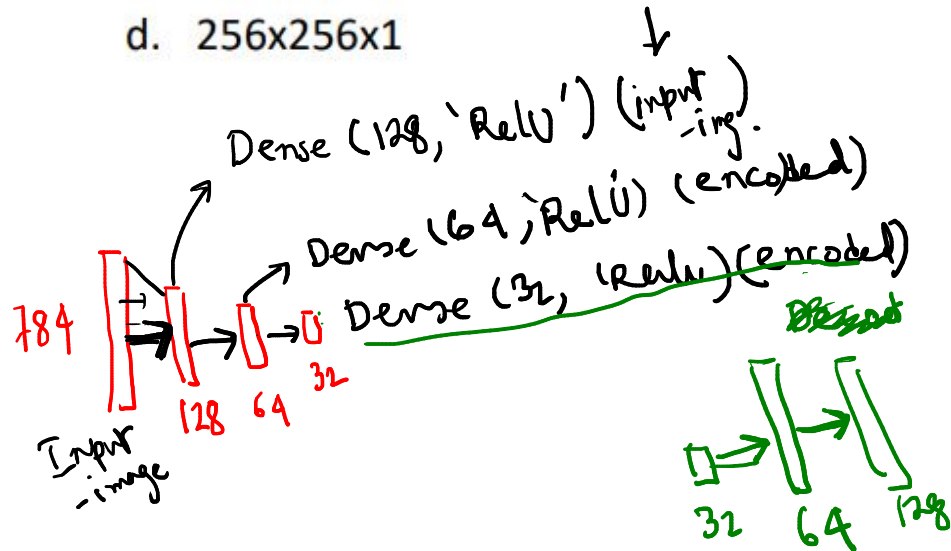 d. 256x256x1
Dense (128, 'RelU') (input
-img.)
Dense (64, 'RelU') (encoded)
Dense (32, 'Relu) (encoded)
784
128
64
32
Input
-image
32
64
128